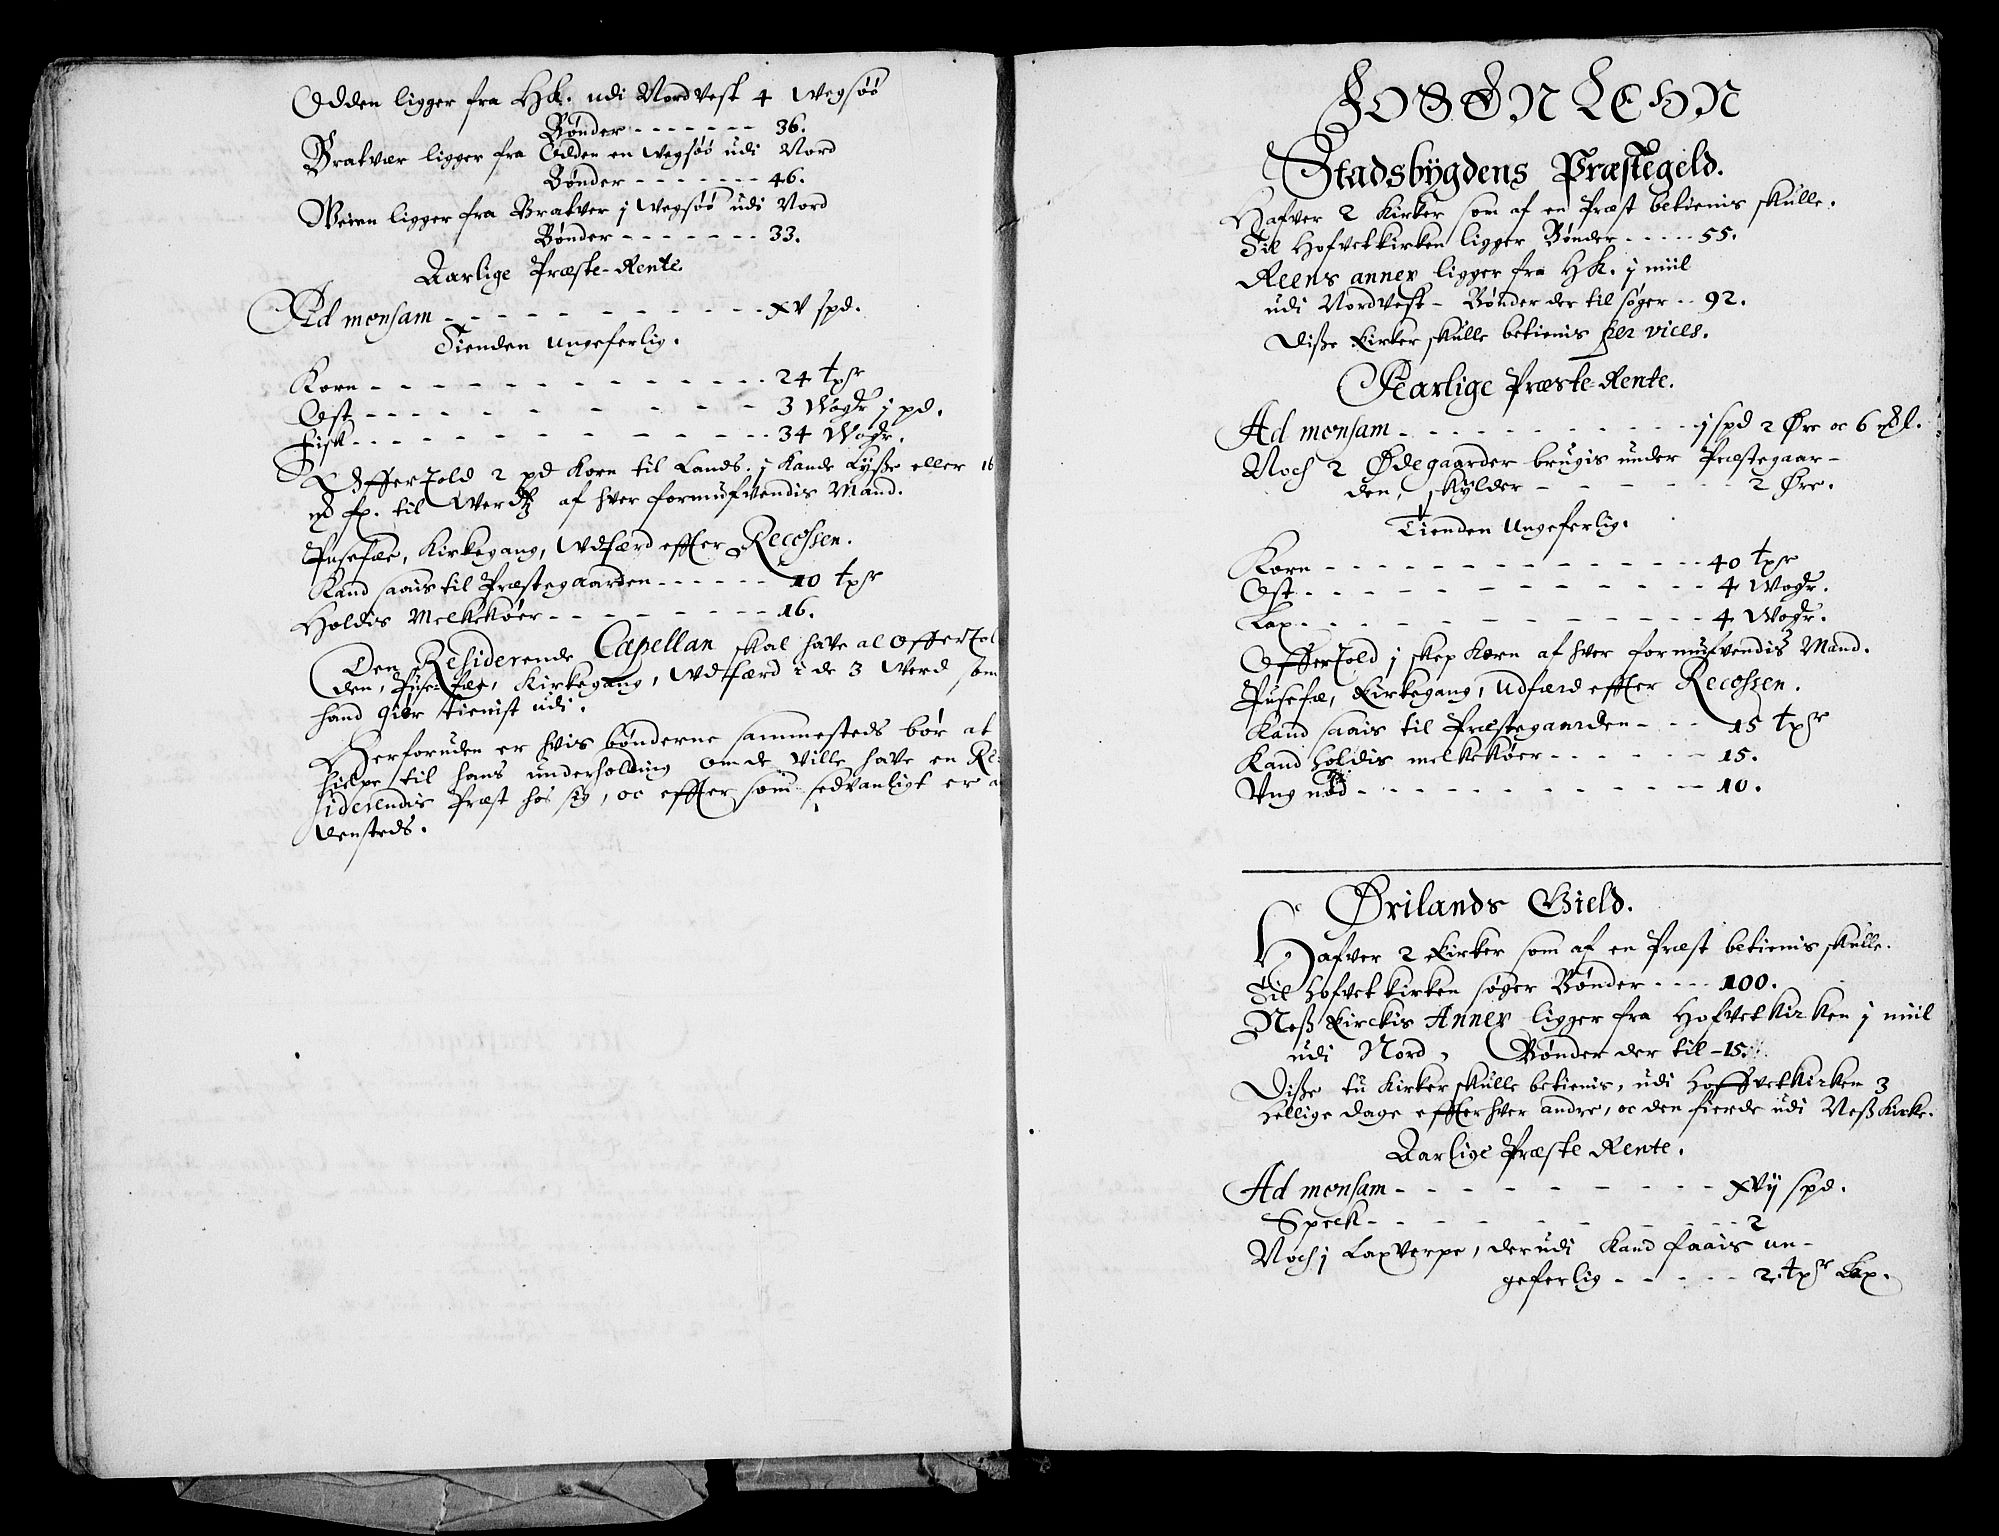 Odden ligger fra Hk. udi Nordvest 4 Wegsøö
Bønder - - - - - - - 36.
Bratvær ligger fra Odden en Wegsöö udi Nord
Bønder - - - - - - - 46.
Veien ligger fra Bratver j Wegsöö udi Nord
Bønder - - - - - - - 33.
Aarlige Præste-Rente.
Ad mensam - - - - - - - - - - XV spd.
Tienden ungeferlig.
Korn - - - - - - - - - - - - 24 tpr
Ost - - - - - - - - - - 3 Wogr j pd.
Fisk - - - - - - - - - - 34 Wogr.
Offertold 2 pd Korn til Lands. j Kande Lysse eller 16
fp. til Werdtz af hver formufvendis Mand.
Pusefæe, Kirkegang, Wdfærd effter Recossen.
Kand saais til Præstegaarden - - - - - - 10 tpr
Holdis Melkekøer - - - - - - - - 16.
Den Residerende Capellan skal have al Offertol
den, Puse-fæe, Kirkegang, Wdfærd i de 3 Werd som
hand giør tienist udi.
Herforuden er hvis bønderne sammesteds bør at
hielpe til hans underholding om de ville have en Re-
siderendis Præst hos sig, oc effter som sedvanligt er a
densteds.
FOSEN LEHN
Stadsbygdens Præstegeld.
Hafver 2 Kirker som af en Præst betienis skulle.
Til Hofvetkirken ligger Bønder - - - - - 55.
Reens annex ligger fra Hk. j miil
udi Nordvest - Bønder der til søger - - 92.
Disse Kirker skulle betienis per vices.
Aarlige Præste-Rente.
Ad mensam - - - - - - - - - j spd 2 Øre oc 6 ml.
Noch 2 Ødegaarder brugis under Præstegaar-
den, skylder - - - - - - - 2 Øre.
Tienden Ungeferlig.
Korn - - - - - - - - - - - - - 40 tpr
Ost - - - - - - - - - - - - 4 Wogr.
Lax - - - - - - - - - - - - 4 Wogr.
Offertold j skep Korn af hver formufvendis Mand.
Pusefæ, Kirkegang, Udfærd effter Recossen.
Kand saais til Præstegaarden - - - - 15 tpr
Kand holdis melkekøer - - - - - - 15.
Ung nød - - - - - - - - - - 10.
Ørilands Gield.
Hafver 2 Kirker som af en Præst betienis skulle.
Til Hofvetkirken søger Bønder - - - - 100.
Ness Kirckis Annex ligger fra Hofvetkirken j miil
udi Nord, Bønder der til - 15.
Disse tu Kirker skulle betienis, udi Hoffvetkirken 3
hellige dage effter hver andre, oc den fierde udi Ness Kirke.
Aarlige Præste Rente.
Ad mensam - - - - - - - - XVij spd.
Speck - - - - - - - - - - 2
Noch j Laxverpe, der udi Kand faais un-
geferlig - - - - - 2. tpr Lax.